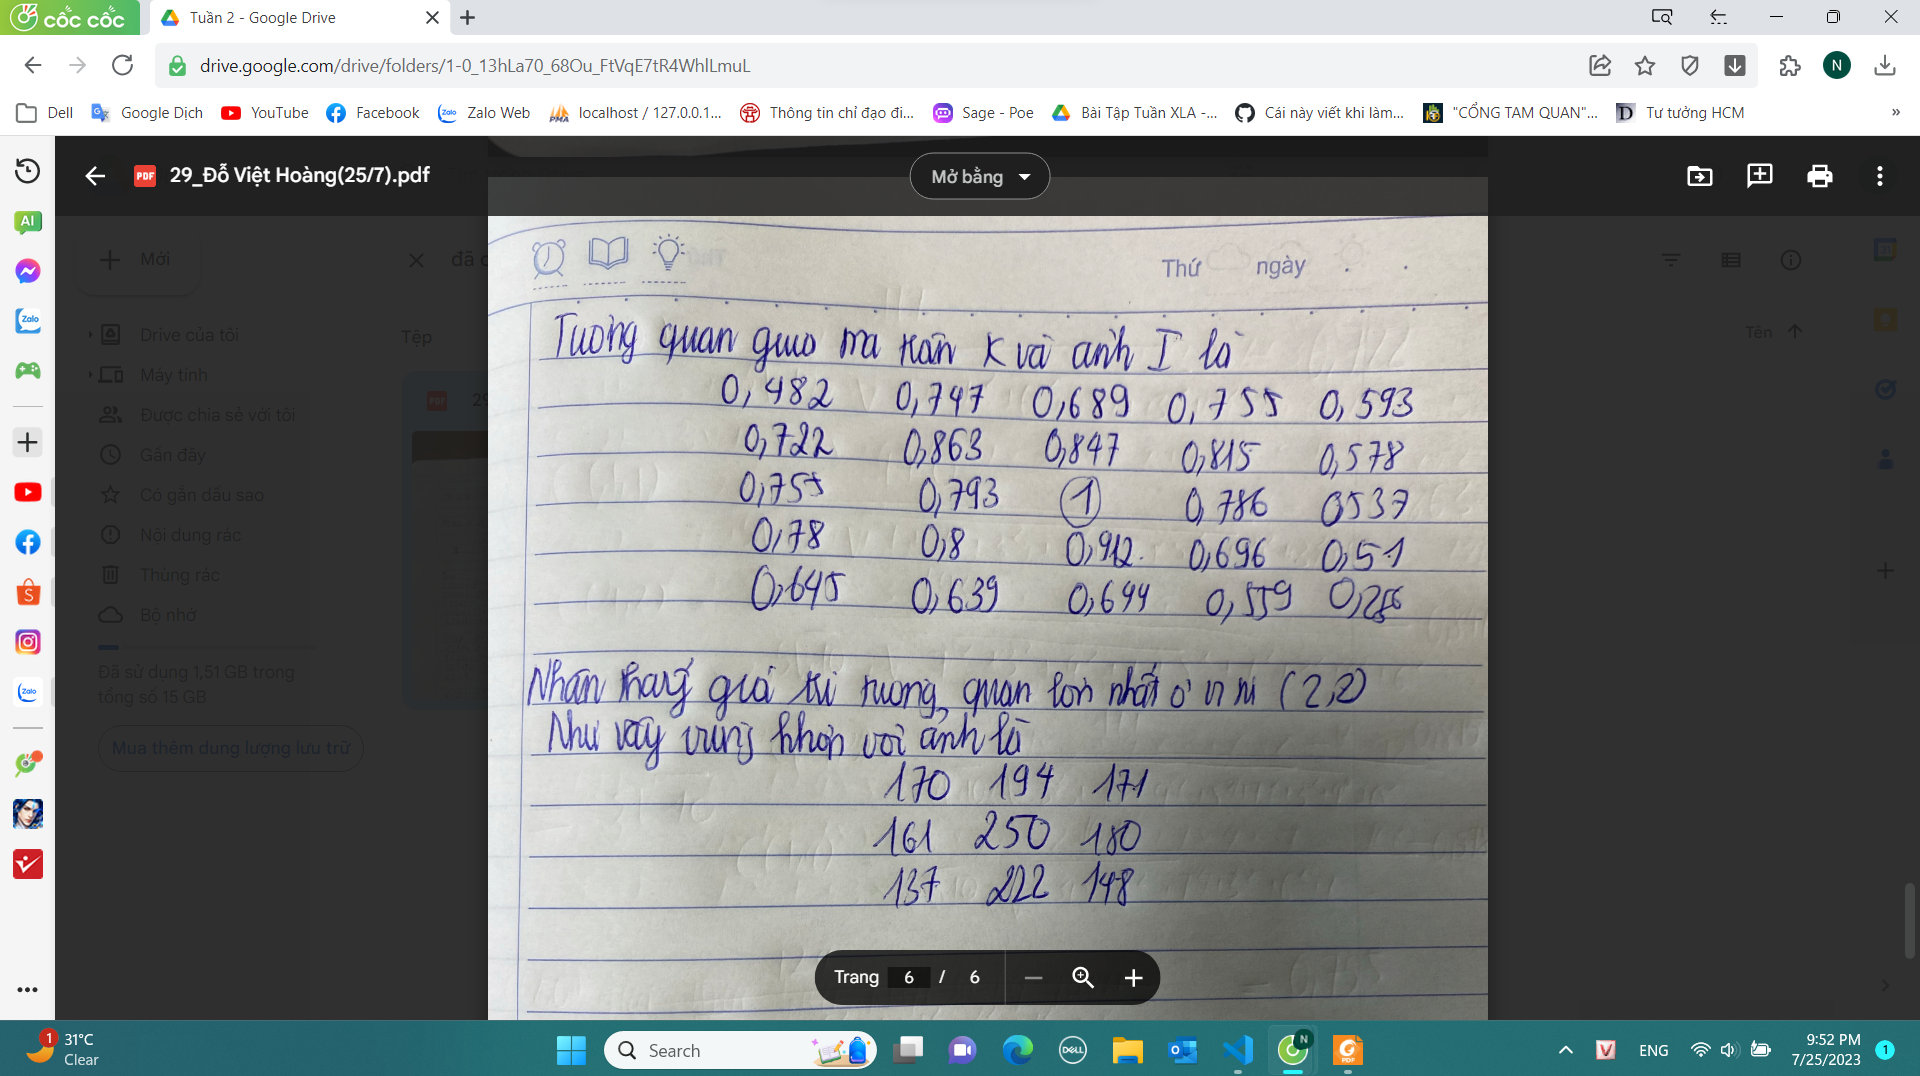 cốc cốc
Tuần 2 - Google Drive
drive.google.com/drive/folders/1-0_13hLa70_68Ou_FtVqE7tR4WhlLmuL
N
Dell
Google Dịch
YouTube
Facebook
Zalo Web
localhost / 127.0.0.1...
Thông tin chỉ đạo đi...
Sage - Poe
Bài Tập Tuần XLA -...
Cái này viết khi làm...
"CỔNG TAM QUAN"...
Tư tưởng HCM
»
AI
PDF 29_Đỗ Việt Hoàng(25/7).pdf
Mở bằng
Mới
đã c
Drive của tôi
Tệp
Tên
Máy tính
Được chia sẻ với tôi
PDF 29
Gần đây
Có gắn dấu sao
Nội dung rác
Thùng rác
Bộ nhớ
Đã sử dụng 1,51 GB trong
tổng số 15 GB
Mua thêm dung lượng lưu trữ
Zalo
Zalo
Thứ ngày
Tương quan giữa ma trận K và ảnh I là
0,482 0,747 0,689 0,755 0,593
0,722 0,863 0,847 0,815 0,578
0,755 0,793 1 0,786 0,537
0,78 0,8 0,912 0,696 0,51
0,645 0,639 0,644 0,559 0,256
Nhận thấy giá trị tương quan lớn nhất ở vị trí (2,2)
Như vậy vùng khớp với ảnh là
170 194 171
161 250 180
137 222 148
Trang 6 / 6
1
31°C
Clear
Search
DELL
N
PDF
V
ENG
9:52 PM
7/25/2023
1